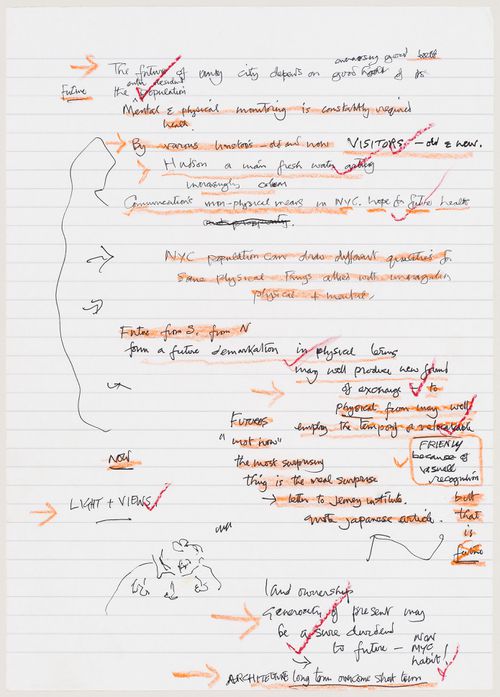 increasingly good health
The future of any city depends on good health of its
Future
entire resident
the population
Mental & physical monitoring is constantly required
health.
By various visitors - old and now VISITORS - old & new.
Hudson a main fresh water
increasingly clean
Communications non-physical means in NYC. hope for future health
NYC population can draw different qualities for
same physical things allied with
physical + mental,
Future from S. from N
form a future demarkation in physical terms
may well produce new found
of exchange - to
physical form may well
employ the temporary
FUTURES
"not now"
FRIENDLY
because of
recognition
NOW
the most surprising
thing is the real surprise
→ letter to Jerney institute.
quote japanese article.
but
that
is
future
LIGHT + VIEWS
land ownership
Generosity of present may
be a sure dividend
to future - now
NYC
habit!
ARCHITECTURE long term overcome short term